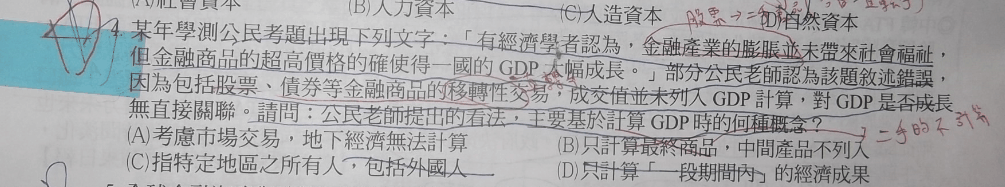 (A)社會資本 (B)人力資本 (C)人造資本 (D)自然資本
股票→二手
4. 某年學測公民考題出現下列文字：「有經濟學者認為，金融產業的膨脹並未帶來社會福祉，
但金融商品的超高價格的確使得一國的 GDP 大幅成長。」部分公民老師認為該題敘述錯誤，
因為包括股票、債券等金融商品的移轉性交易，成交值並未列入 GDP 計算，對 GDP 是否成長
無直接關聯。請問：公民老師提出的看法，主要基於計算 GDP 時的何種概念？
二手的不計算
(A)考慮市場交易，地下經濟無法計算 (B)只計算最終商品，中間產品不列入
(C)指特定地區之所有人，包括外國人 (D)只計算「一段期間內」的經濟成果